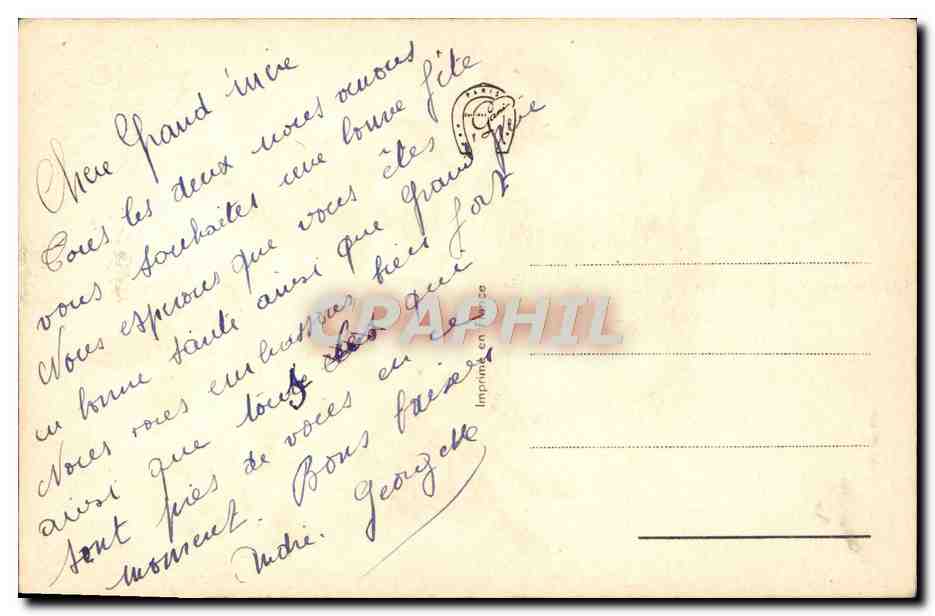 Chère Grand'mère
Tous les deux nous venons
vous souhaiter une bonne fête
Nous esperons que vous êtes
en bonne santé ainsi que Grand père
Nous vous embrassons bien fort
ainsi que tous ceux qui
sont près de vous en ce
moment. Bons baisers
André. Georgette
PARIS
Imprimé en France
CPAPHIL